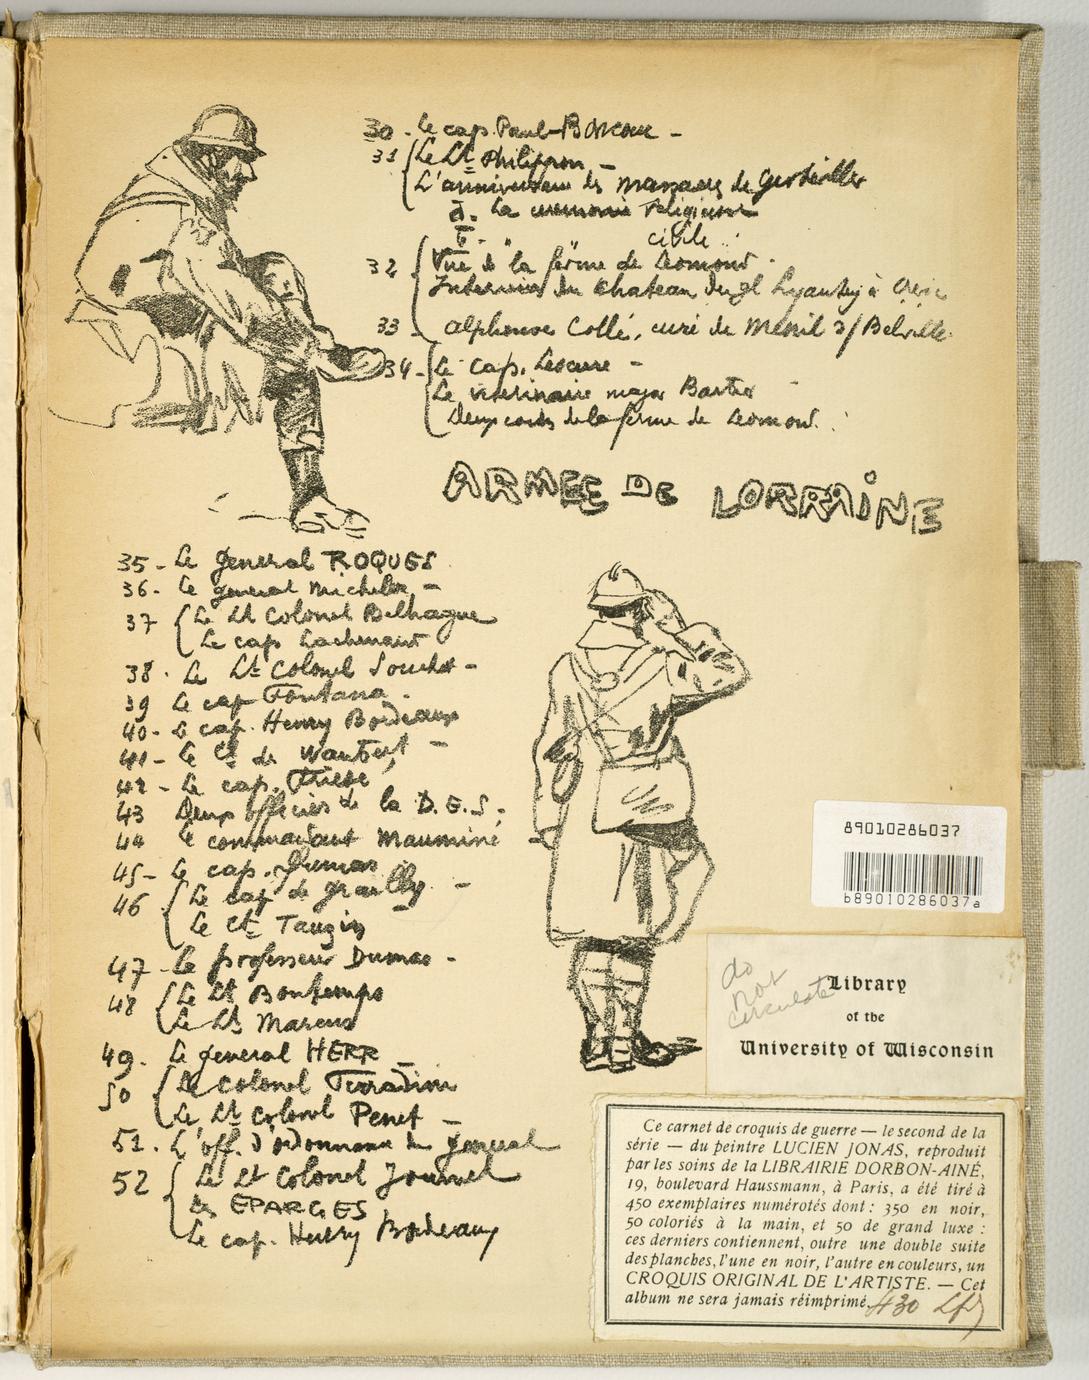 30 - Le cap. Paul-
31 Le Lt Philippon -
L'anniversaire des massacres de Gerbéviller
a. La ceremonie religieuse
b. " " civile
32 Vue de la ferme de Leomont.
Interieur du Chateau du gl Lyautey à
33 - Alphonse Collé, curé de Menil s/ Belvitte
34 - Le cap. Lescure -
Le vétérinaire major
Deux coins de la ferme de Leomont.
ARMEE DE LORRAINE
35 - Le general ROQUES
36 - Le general Micheler -
37 Le Lt Colonel Belhague
Le cap
38 - Le Lt Colonel Souchet -
39 Le cap Fontana.
40 - Le cap. Henry Bordeaux
41 - Le Ct de -
42 - Le cap.
43 Deux officiers de la D.E.S.
44 Le commandant Mauminé
45 - Le cap. Dumas
46 Le cap de Grailly -
Le Ct
47 - Le professeur Dumas -
48 Le Lt Bontemps
Le Lt Marcus
49. Le general HERR -
50 Le Colonel
Le Lt Colonel Penet -
51. L'off. d'ordonnance du general
52 Le Lt Colonel
Les EPARGES
Le cap. Henry Bordeaux
89010286037
b89010286037a
do
not
circulate
Library
of the
University of Wisconsin
Ce carnet de croquis de guerre — le second de la
série — du peintre LUCIEN JONAS, reproduit
par les soins de la LIBRAIRIE DORBON-AINÉ,
19, boulevard Haussmann, à Paris, a été tiré à
450 exemplaires numérotés dont : 350 en noir,
50 coloriés à la main, et 50 de grand luxe :
ces derniers contiennent, outre une double suite
des planches, l'une en noir, l'autre en couleurs, un
CROQUIS ORIGINAL DE L'ARTISTE. — Cet
album ne sera jamais réimprimé.
430